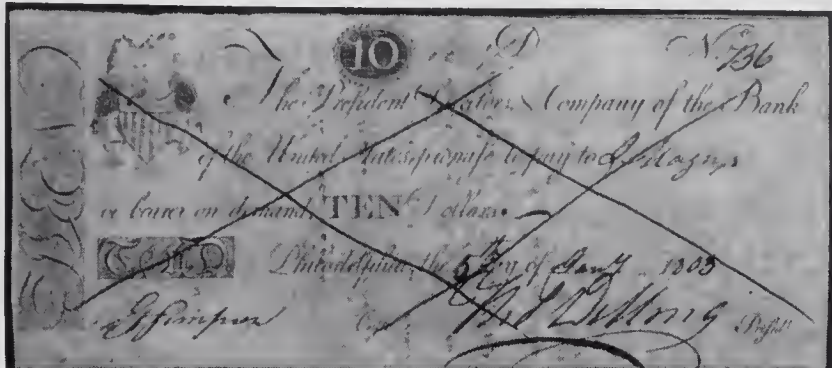 10 D No 736
The President Directors & Company of the Bank
of the United States promise to pay to
or bearer on demand, TEN Dollars
TEN Philadelphia, the 5 day of Jany 1803
G Simpson Cash. Presidt.